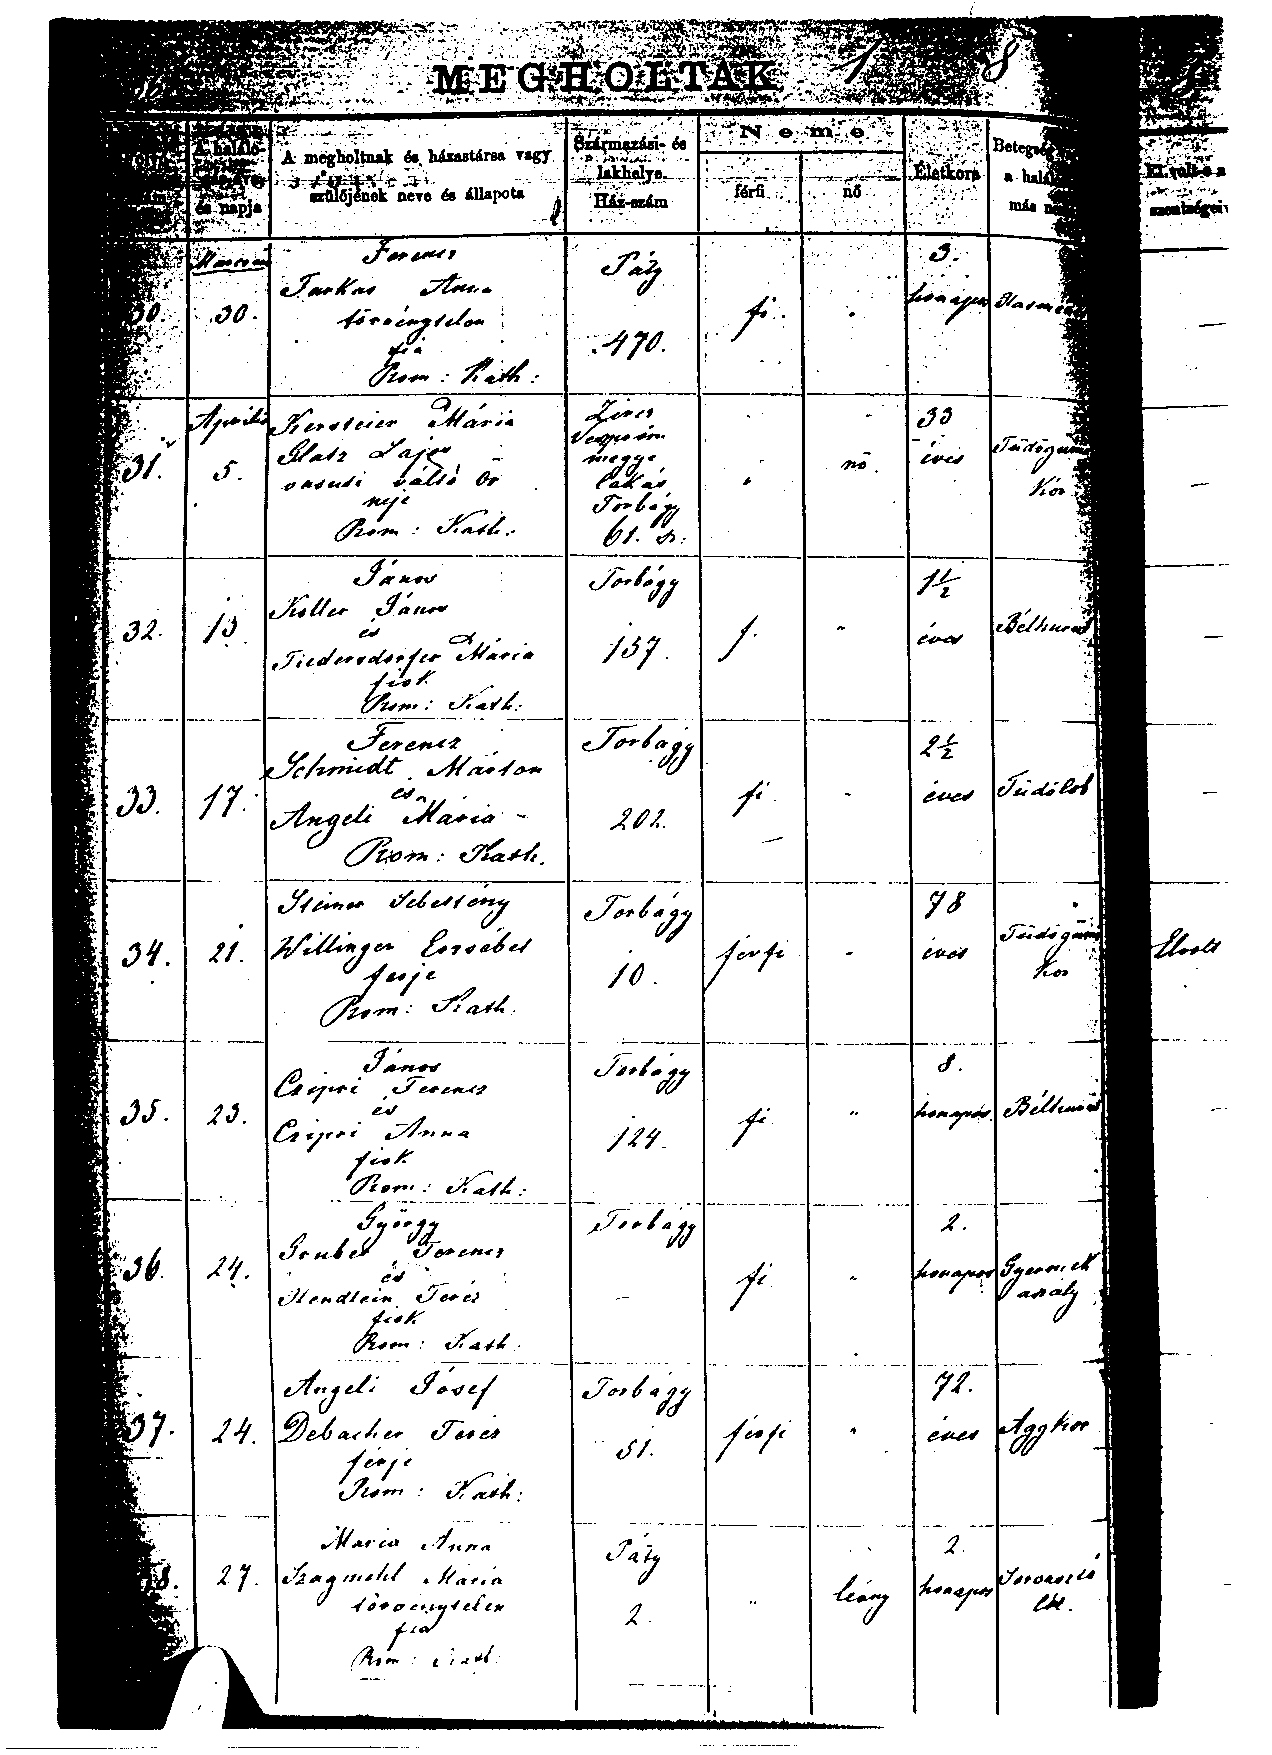 MEGHOLTAK 1 8
A halálo-
és napja
A megholtnak és házastársa vagy
szülőjének neve és állapota
Származási- és
lakhelye
Ház-szám
Neme
férfi
nő
Életkora
Betegség
a halál
más
El volt-e a
szentségei
30.
30.
Ferencz
Farkas Anna
törvénytelen
fia
Rom: Kath:
Páty
470.
fi.
3.
honapos
31.
Aprilis
5.
Mária
Glatz Lajos
vasuti váltó őr
neje
Rom: Kath:
Zircz
Veszprém
megye
lakás
Torbágy
61. sz:
nő.
33
éves
Tüdőgüm
kór
32.
13
János
Koller János
és
Fiedersdorfer Mária
fiok
Rom: Kath:
Torbágy
137.
f.
1½
éves
Bélhurut
33.
17.
Ferencz
Schmidt Márton
és
Angeli Mária
Rom: Kath.
Torbágy
202.
fi
2½
éves
Tüdőlob
34.
21.
Steiner Sebestény
Willinger Erzsébet
ferje
Rom: Kath.
Torbágy
10.
férfi
78
éves
Tüdőgüm
kor
Elvolt
35.
23.
János
Czipri Ferencz
és
Czipri Anna
fiok
Rom: Kath:
Torbágy
124.
fi
8.
honapos.
Bélhurut
36.
24.
György
Gruber Ferencz
és
Hendlein Teréz
fiok
Rom: Kath:
Torbágy
fi
2.
honapos
Gyermek
aszály
37.
24.
Angeli József
Debacher Teréz
férje
Rom: Kath:
Torbágy
51.
férfi
72.
éves
Aggkor
8.
27.
Maria Anna
Szagmehl Maria
törvénytelen
fia
Rom: Kath:
Páty
2.
leány
2.
honapos